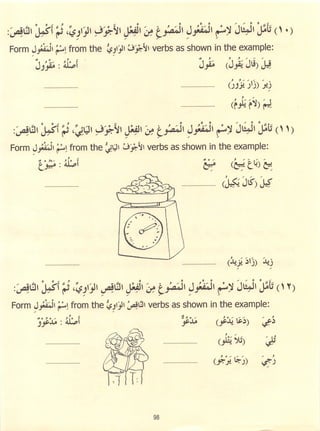 (١٠) تأمل المثال لاسم المفعول المصوغ من الفعل الأجوف الواوي، ثم أكمل الناقص:
Form اسم المفعول from the الأجوف الواوي verbs as shown in the example:
قيل (قال يقول) مقول أصله : مقوول
زير (زار يزور)
ليم (لام يلوم)
(١١) تأمل المثال لاسم المفعول المصوغ من الفعل الأجوف اليائي، ثم أكمل الناقص:
Form اسم المفعول from the الأجوف اليائي verbs as shown in the example:
بيع (باع يبيع) مبيع أصله : مبيوع
كيل (كال يكيل)
زيد (زاد يزيد)
(١٢) تأمل المثال لاسم المفعول المصوغ من الفعل الناقص الواوي، ثم أكمل الناقص:
Form اسم المفعول from the الناقص الواوي verbs as shown in the example:
دعي (دعا يدعو) مدعو أصله : مدعوو
تلي (تلا يتلو)
98